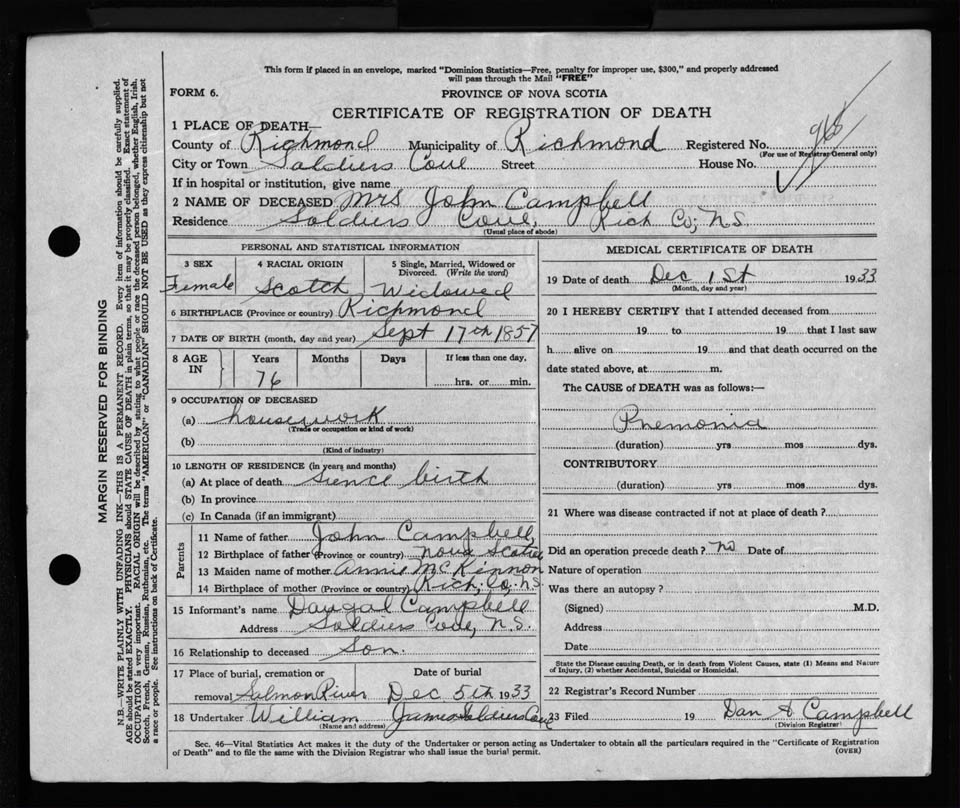 This form if placed in an envelope, marked "Dominion Statistics—Free, penalty for improper use, $300," and properly addressed
will pass through the Mail "FREE"
FORM 6.
PROVINCE OF NOVA SCOTIA
CERTIFICATE OF REGISTRATION OF DEATH
1 PLACE OF DEATH—
County of Richmond Municipality of Richmond Registered No.
(For use of Registrar General only)
City or Town Soldiers Cove Street House No.
If in hospital or institution, give name
2 NAME OF DECEASED Mrs John Campbell
Residence Soldiers Cove, Rich Co; N.S.
(Usual place of abode)
PERSONAL AND STATISTICAL INFORMATION
3 SEX 4 RACIAL ORIGIN 5 Single, Married, Widowed or Divorced. (Write the word)
Female Scotch Widowed
6 BIRTHPLACE (Province or country) Richmond
7 DATE OF BIRTH (month, day and year) Sept 17th 1857
8 AGE IN Years Months Days If less than one day,
76 hrs. or min.
9 OCCUPATION OF DECEASED
(a) housework
(Trade or occupation or kind of work)
(b)
(Kind of industry)
10 LENGTH OF RESIDENCE (in years and months)
(a) At place of death sience birth
(b) In province
(c) In Canada (if an immigrant)
Parents
11 Name of father John Campbell,
12 Birthplace of father (Province or country) Nova Scotia
13 Maiden name of mother Annie McKinnon
14 Birthplace of mother (Province or country) Rich, Co, N.S.
15 Informant's name Dougal Campbell
Address Soldiers Cove, N.S.
16 Relationship to deceased Son.
17 Place of burial, cremation or Date of burial
removal Salmon River Dec 5th 1933
18 Undertaker William James Soldiers Cove
(Name and address)
MEDICAL CERTIFICATE OF DEATH
19 Date of death Dec 1st 1933
(Month, day and year)
20 I HEREBY CERTIFY that I attended deceased from
19 to 19 that I last saw
h alive on 19 and that death occurred on the
date stated above, at m.
The CAUSE of DEATH was as follows:—
Pnemonia
(duration) yrs mos dys.
CONTRIBUTORY
(duration) yrs mos dys.
21 Where was disease contracted if not at place of death?
Did an operation precede death? No Date of
Nature of operation
Was there an autopsy?
(Signed) M.D.
Address
Date
State the Disease causing Death, or in death from Violent Causes, state (1) Means and Nature
of Injury, (2) whether Accidental, Suicidal or Homicidal.
22 Registrar's Record Number
23 Filed 19 Dan A Campbell
(Division Registrar)
Sec. 46—Vital Statistics Act makes it the duty of the Undertaker or person acting as Undertaker to obtain all the particulars required in the "Certificate of Registration
of Death" and to file the same with the Division Registrar who shall issue the burial permit.
(OVER)
MARGIN RESERVED FOR BINDING
N.B.—WRITE PLAINLY WITH UNFADING INK—THIS IS A PERMANENT RECORD. Every item of information should be carefully supplied.
AGE should be stated EXACTLY. PHYSICIANS should STATE CAUSE OF DEATH in plain terms, so that it may be properly classified. Exact statement of
OCCUPATION is very important. RACIAL ORIGIN will be described by stating to what people or race the deceased person belonged, whether English, Irish,
Scotch, French, German, Russian, Ruthenian, etc. The terms "AMERICAN" or "CANADIAN" SHOULD NOT BE USED as they express citizenship but not
a race or people. See instructions on back of Certificate.